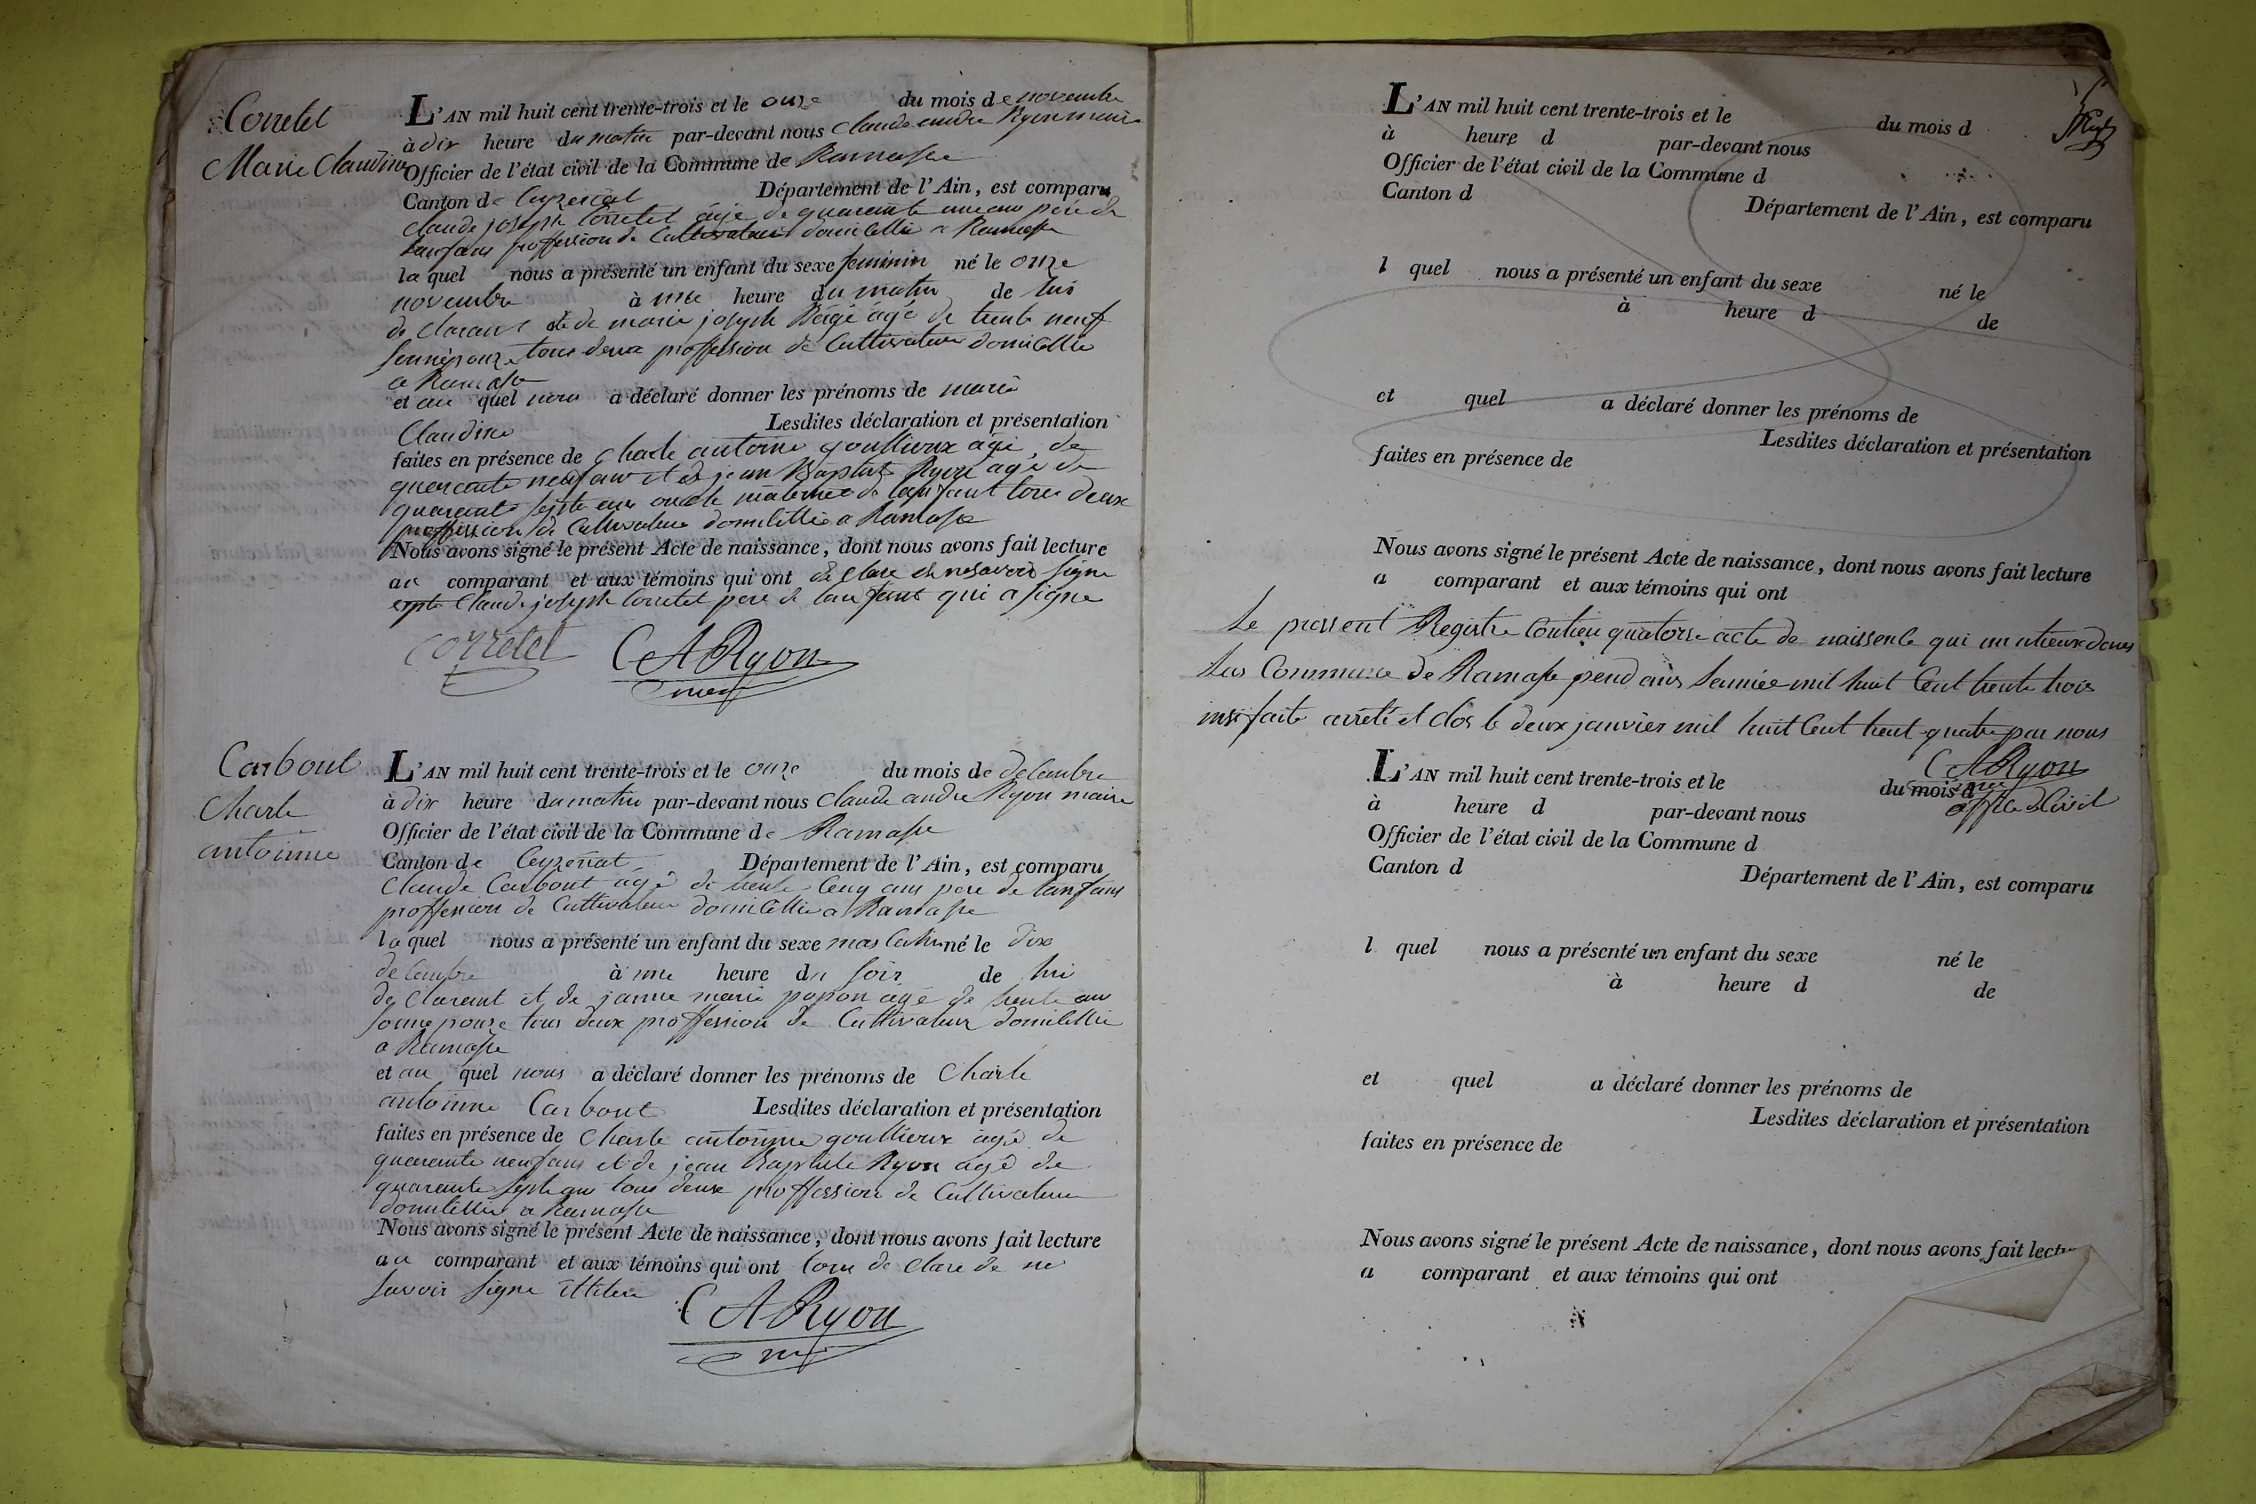 Corretet
Marie Claudine
L'AN mil huit cent trente-trois et le onze du mois de novembre
à dix heure du matin par-devant nous Claude andre Ryon maire
Officier de l'état civil de la Commune de Ramasse
Canton de Ceyzeriat Département de l'Ain, est comparu
Claude joseph Corretet âgé de quarante une ans père de
lanfans proffession de Cultivateur domicillié a Ramasse
la quel nous a présenté un enfant du sexe feminin né le onze
novembre à une heure du matin de lui
de clarant et de marie joseph Bergé âgé de trente neuf
sonnépouze tous deux proffession de Cultivateur domicillié
a Ramasse
et au quel nous a déclaré donner les prénoms de marie
Claudine Lesdites déclaration et présentation
faites en présence de charle antoine goullioux âgé de
quarante neuf ans et de jean Baptiste Ryon agé de
quarante septe ans oncle maternel de lanfant tous deux
proffession de Cultivateur domicillié a Ramasse
Nous avons signé le présent Acte de naissance, dont nous avons fait lecture
au comparant et aux témoins qui ont de clare de ne savoir signe
Claude joseph Corretet pere de lanfant qui a signe
Corretet CARyon
maire
Carbout
Charle
antoinne
L'AN mil huit cent trente-trois et le onze du mois de decembre
à dix heure du matin par-devant nous Claude andre Ryon maire
Officier de l'état civil de la Commune de Ramasse
Canton de Ceyzeriat Département de l'Ain, est comparu
Claude Carbout âgé de trente Cenq ans pere de lanfans
proffession de Cultivateur domicillié a Ramasse
la quel nous a présenté un enfant du sexe masculin né le dixe
decembre à une heure du soir de lui
de clarent et de janne marie popon agé de trente ans
sonnepouze tous deux proffession de Cultivateur domicillié
a Ramasse
et au quel nous a déclaré donner les prénoms de Charle
antoinne Carbout Lesdites déclaration et présentation
faites en présence de charle antoinne goullioux agé de
quarante neuf ans et de jean Baptiste Ryon agé de
quarante septe ans tous deux proffession de Cultivateur
domicillié a Ramasse
Nous avons signé le présent Acte de naissance, dont nous avons fait lecture
au comparant et aux témoins qui ont tous de clare de ne
savoir signe
CARyon
L'AN mil huit cent trente-trois et le du mois d
à heure d par-devant nous
Officier de l'état civil de la Commune d
Canton d Département de l'Ain, est comparu
l quel nous a présenté un enfant du sexe né le
à heure d de
et quel a déclaré donner les prénoms de
Lesdites déclaration et présentation
faites en présence de
Nous avons signé le présent Acte de naissance, dont nous avons fait lecture
a comparant et aux témoins qui ont
Le pressent Registre Contien quatorse acte de naissence qui dans
las Commune de Ramasse pend ans lannée mil huit Cent trente trois
insi faite arreté et clos le deux janvier mil huit Cent trent-quatre par nous
CARyon
L'AN mil huit cent trente-trois et le du mois d
officie Civil
à heure d par-devant nous
Officier de l'état civil de la Commune d
Canton d Département de l'Ain, est comparu
l quel nous a présenté un enfant du sexe né le
à heure d de
et quel a déclaré donner les prénoms de
Lesdites déclaration et présentation
faites en présence de
Nous avons signé le présent Acte de naissance, dont nous avons fait lectu
a comparant et aux témoins qui ont